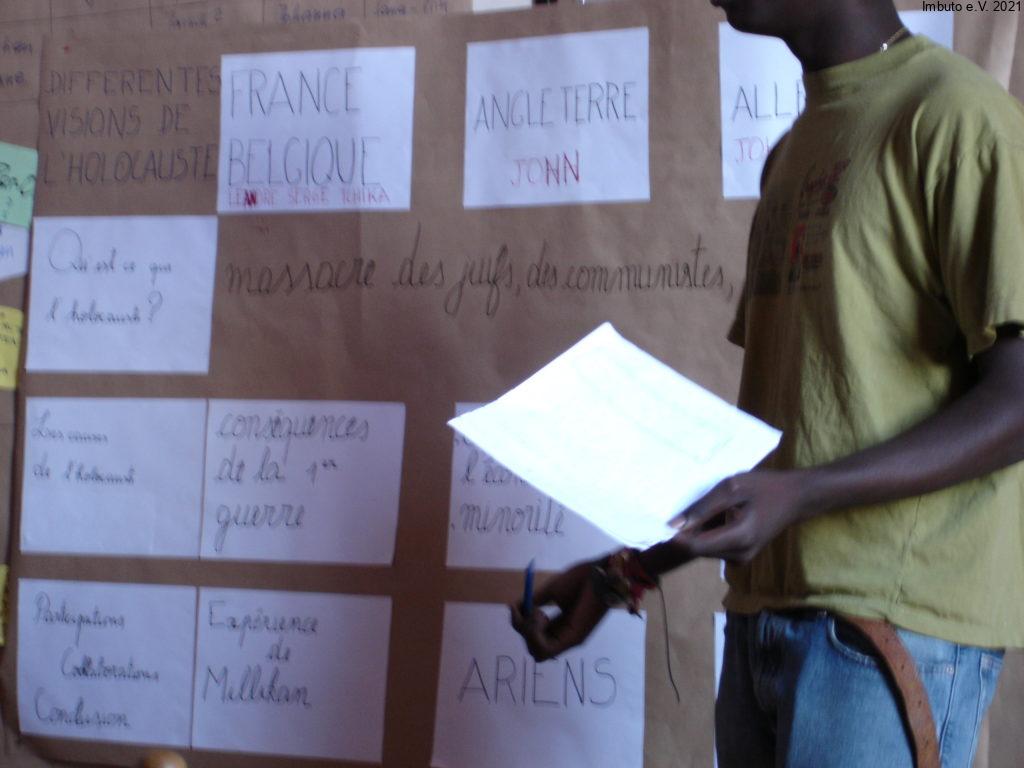 Imbuto e.V. 2021
DIFFERENTES
VISIONS DE
L'HOLOCAUSTE
FRANCE
BELGIQUE
LEANDRE SERGE TCHIKA
ANGLETERRE
JONN
ALL
JO
Qu'est ce que
l'holocauste?
massacre des juifs, des communistes,
Les causes
de l'holocauste
conséquences
de la 1ère
guerre
minorité
Participations
Collaborations
Conclusion
Expérience
de
Millikan
ARIENS